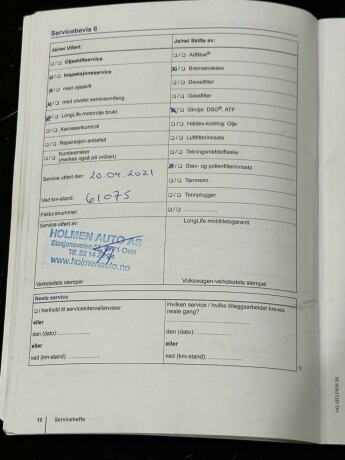 Servicebevis 6
Ja/nei Utført:
Ja/nei Skifte av:
□/□ Oljeskiftservice
□/□ AdBlue®
□/□ Inspeksjonsservice
□/□ Bremsevæske
□/□ med oljeskift
□/□ Dieselfilter
□/□ med utvidet serviceomfang
□/□ Gassfilter
□/□ LongLife motorolje brukt
□/□ Girolje: DSG®, ATF
□/□ Karosserikontroll
□/□ Haldex-kobling: Olje
□/□ Reparasjon anbefalt
□/□ Luftfilterinnsats
□/□ Kundeønsker
(merkes også på ordren)
□/□ Tetningsmiddelflaske
□/□ Støv- og pollenfilterinnsats
Service utført den: 20.04.2021
□/□ Tannreim
Ved km-stand: 61075
□/□ Tennplugger
Fakturanummer:
□/□
Service utført av:
LongLife mobilitetsgaranti:
HOLMEN AUTO AS
Oslo
Tlf. 22 14
www.holmenauto.no
Verkstedets stempel
Volkswagen-verkstedets stempel
Neste service
□ I henhold til serviceintervallanviser
Hvilken service / hvilke tilleggsarbeider kreves
neste gang?
eller
den (dato):
den (dato):
eller
eller
ved (km-stand):
ved (km-stand):
10 Servicehefte